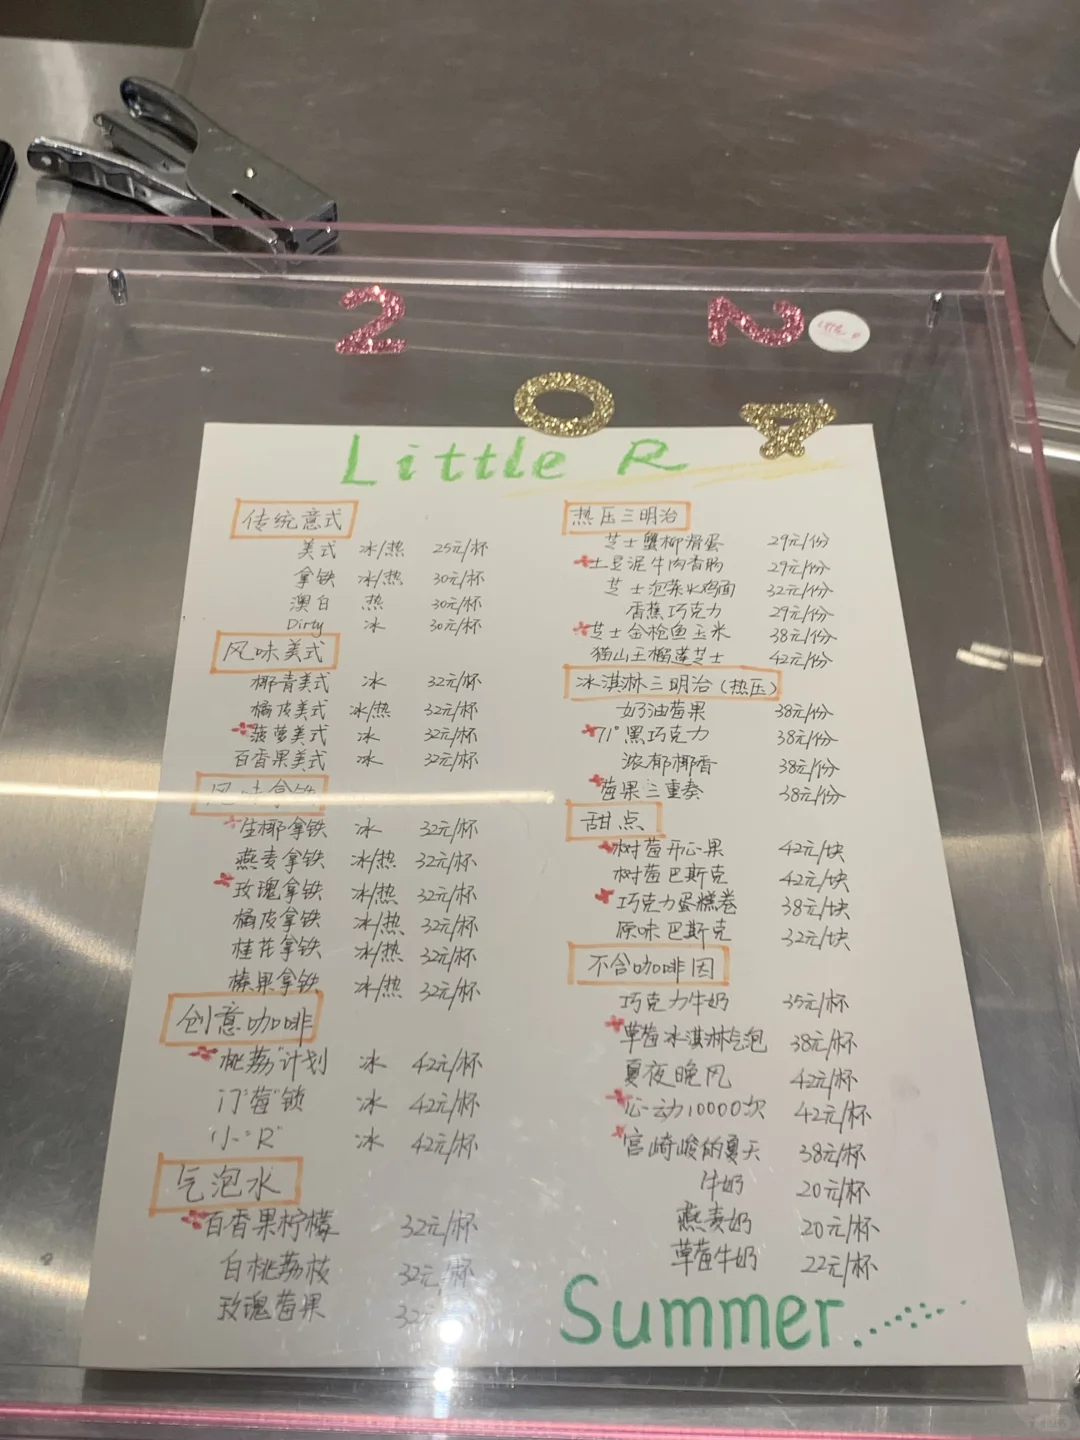 2 2
0 4
Little R
传统意式
美式 冰/热 25元/杯
拿铁 冰/热 30元/杯
澳白 热 30元/杯
Dirty 冰 30元/杯
风味美式
椰青美式 冰 32元/杯
橘皮美式 冰/热 32元/杯
菠萝美式 冰 32元/杯
百香果美式 冰 32元/杯
风味拿铁
生椰拿铁 冰 32元/杯
燕麦拿铁 冰/热 32元/杯
玫瑰拿铁 冰/热 32元/杯
橘皮拿铁 冰/热 32元/杯
桂花拿铁 冰/热 32元/杯
榛果拿铁 冰/热 32元/杯
创意咖啡
"桃荔"计划 冰 42元/杯
门"莓"锁 冰 42元/杯
小"R" 冰 42元/杯
气泡水
百香果柠檬 32元/杯
白桃荔枝 32元/杯
玫瑰莓果 32
热压三明治
芝士蟹柳滑蛋 29元/份
土豆泥牛肉香肠 29元/份
芝士泡菜火鸡面 32元/份
香蕉巧克力 29元/份
芝士金枪鱼玉米 38元/份
猫山王榴莲芝士 42元/份
冰淇淋三明治(热压)
奶油莓果 38元/份
71°黑巧克力 38元/份
浓郁椰香 38元/份
莓果三重奏 38元/份
甜点
树莓开心果 42元/块
树莓巴斯克 42元/块
巧克力蛋糕卷 38元/块
原味巴斯克 32元/块
不含咖啡因
巧克力牛奶 35元/杯
草莓冰淇淋气泡 38元/杯
夏夜晚风 42元/杯
心动10000次 42元/杯
宫崎骏的夏天 38元/杯
牛奶 20元/杯
燕麦奶 20元/杯
草莓牛奶 22元/杯
Summer